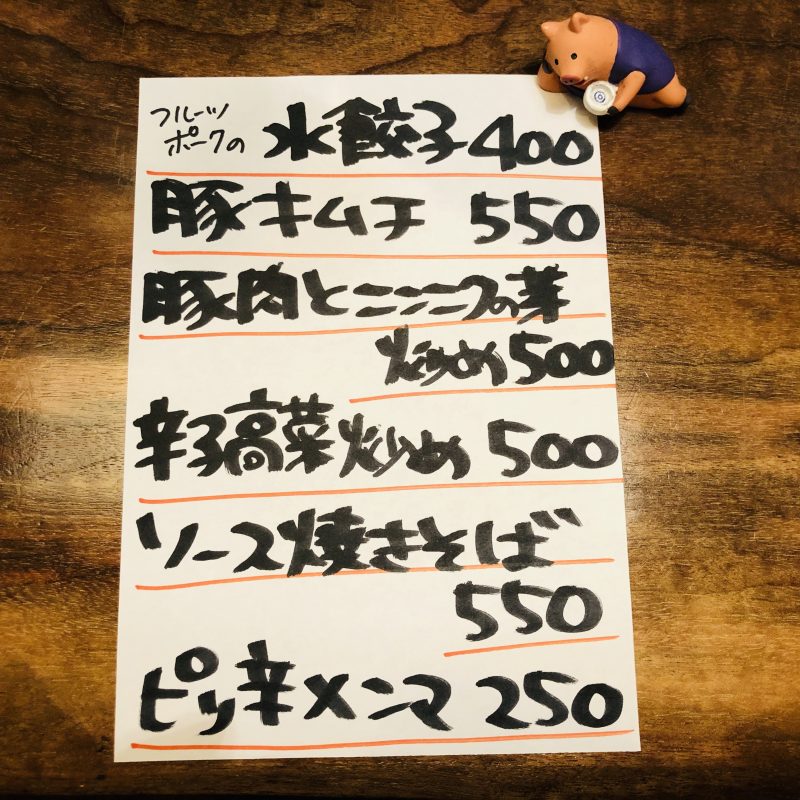 フルーツ
ポークの 水餃子 400
豚キムチ 550
豚肉とニンニクの芽
炒め 500
辛子高菜炒め 500
ソース焼きそば
550
ピリ辛メンマ 250